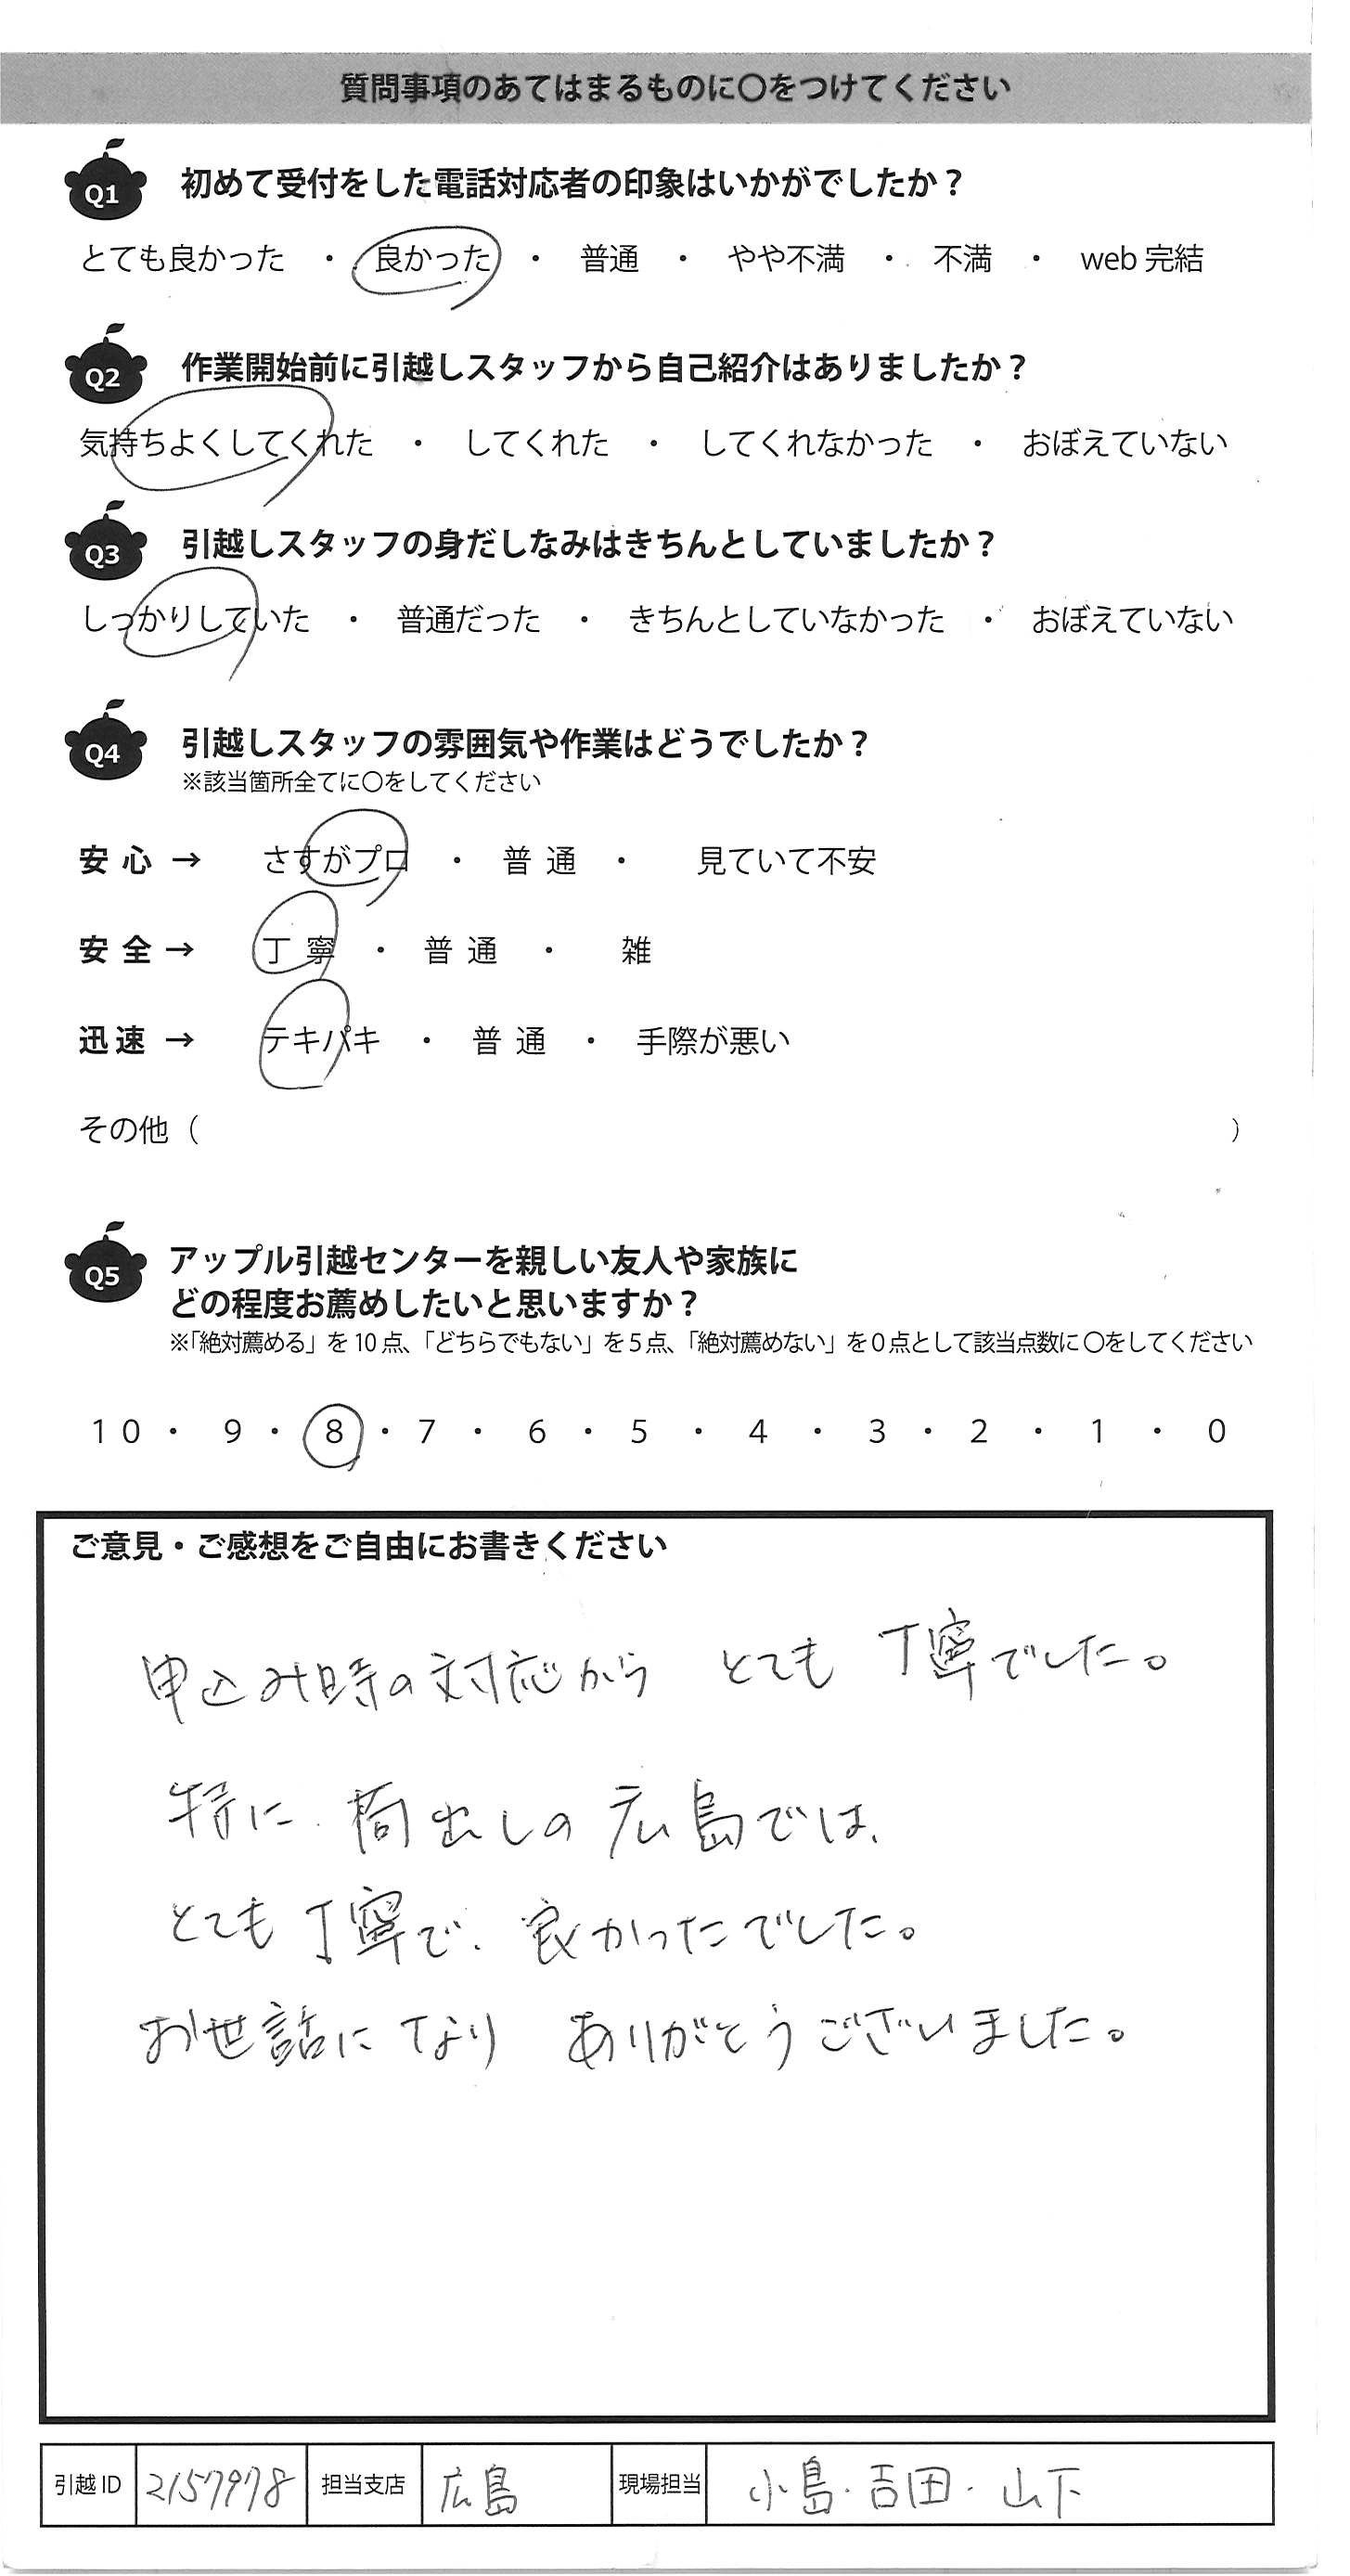 質問事項のあてはまるものに〇をつけてください
Q1 初めて受付をした電話対応者の印象はいかがでしたか？
とても良かった ・ 良かった ・ 普通 ・ やや不満 ・ 不満 ・ web 完結
Q2 作業開始前に引越しスタッフから自己紹介はありましたか？
気持ちよくしてくれた ・ してくれた ・ してくれなかった ・ おぼえていない
Q3 引越しスタッフの身だしなみはきちんとしていましたか？
しっかりしていた ・ 普通だった ・ きちんとしていなかった ・ おぼえていない
Q4 引越しスタッフの雰囲気や作業はどうでしたか？
※該当箇所全てに〇をしてください
安心 → さすがプロ ・ 普通 ・ 見ていて不安
安全 → 丁寧 ・ 普通 ・ 雑
迅速 → テキパキ ・ 普通 ・ 手際が悪い
その他（ ）
Q5 アップル引越センターを親しい友人や家族に
どの程度お薦めしたいと思いますか？
※「絶対薦める」を10点、「どちらでもない」を5点、「絶対薦めない」を0点として該当点数に〇をしてください
10 ・ 9 ・ 8 ・ 7 ・ 6 ・ 5 ・ 4 ・ 3 ・ 2 ・ 1 ・ 0
ご意見・ご感想をご自由にお書きください
申込み時の対応から とても 丁寧でした。
特に、荷出しの 広島では、
とても 丁寧で、良かったでした。
お世話になり ありがとうございました。
引越ID 2157978 担当支店 広島 現場担当 小島・吉田・山下